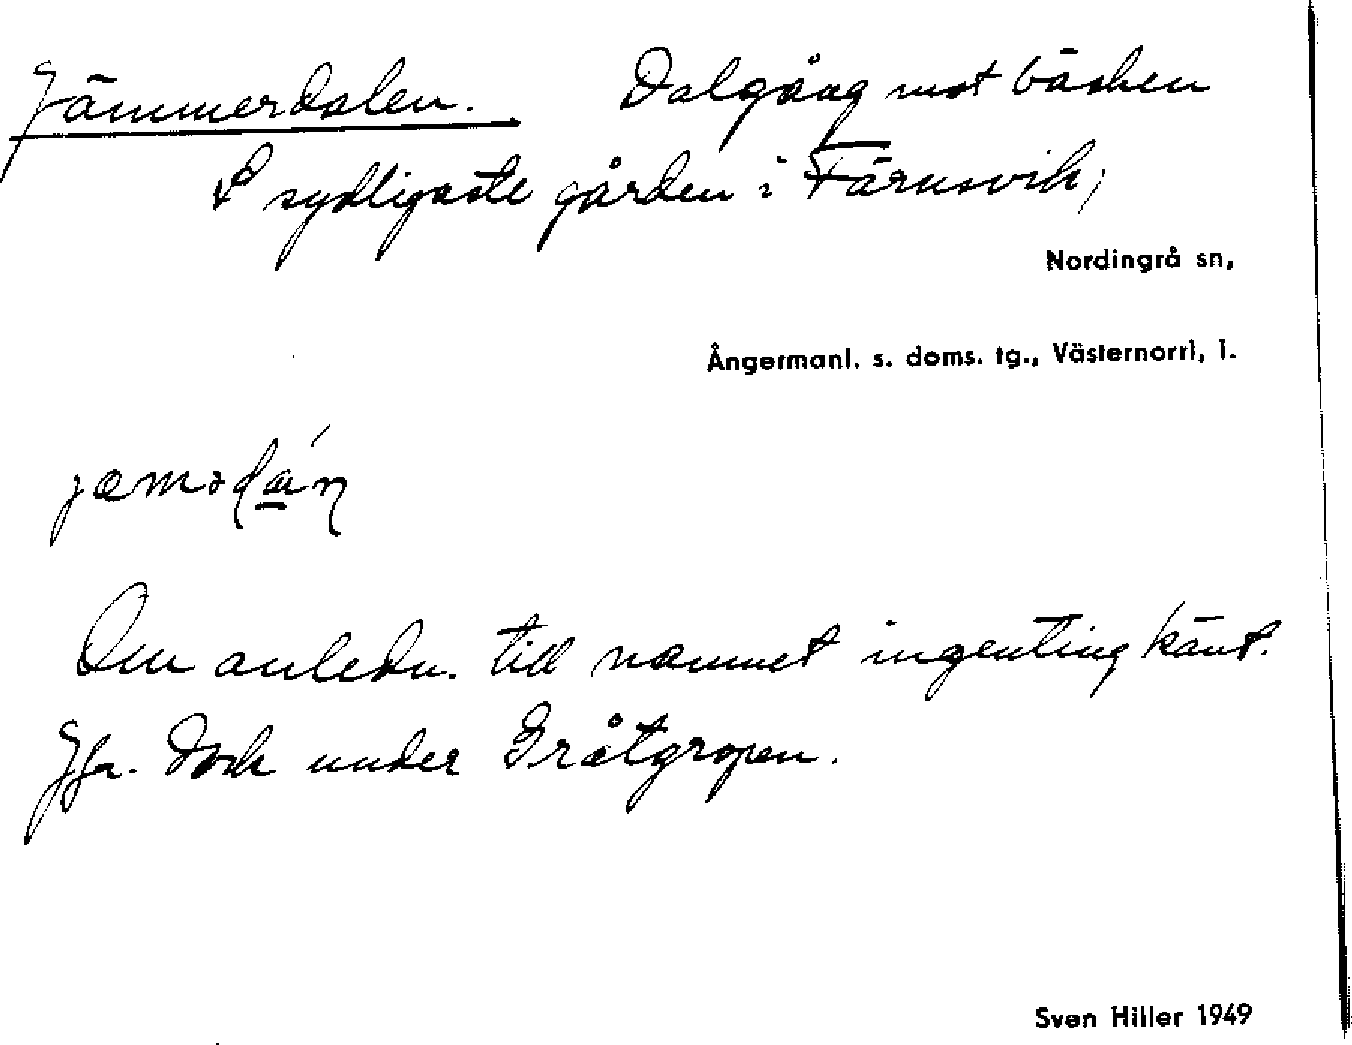 Jämmerdalen. Dalgång mot bäcken
S sydligaste gården i Färnsvik,
Nordingrå sn,
Ångermanl. s. doms. tg., Västernorrl, l.
Om anledn. till namnet ingenting känt.
Jfr. dock under Gråtgropen.
Sven Hiller 1949